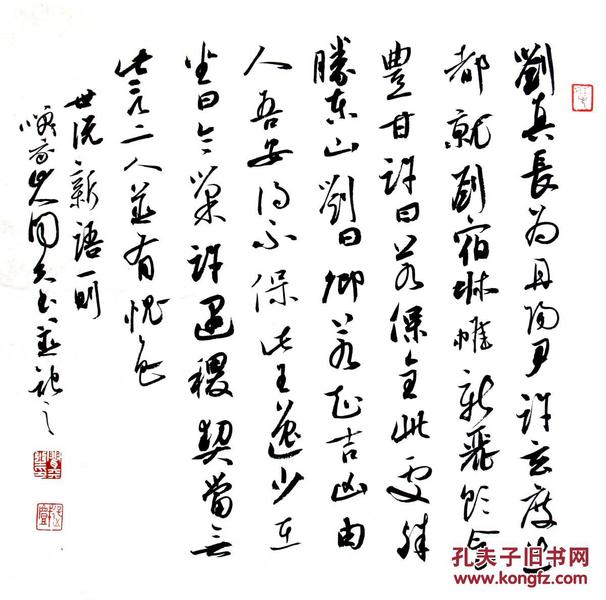 劉真長為丹陽尹許玄度出
都就劉宿牀帷新麗飲食
豐甘許曰若保全此處殊
勝東山劉曰卿若知吉凶由
人吾安得不保此王逸少在
坐曰令巢許遇稷契當無
此言二人並有愧色
世說新語一則
孔夫子旧书网
www.kongfz.com